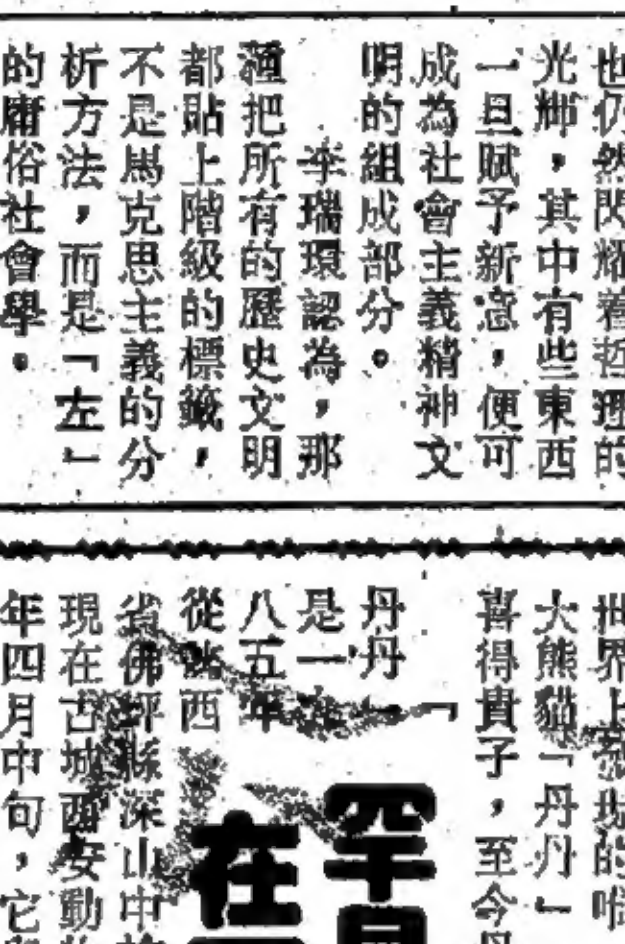 也仍然閃耀着哲理的
光輝，其中有些東西
一旦賦予新意，便可
成為社會主義精神文
明的組成部分。
李瑞環認為，那
種把所有的歷史文明
都貼上階級的標籤，
不是馬克思主義的分
析方法，而是「左」
的庸俗社會學。
世界上發現的唯
大熊貓「丹丹」
喜得貴子，至今
「
丹丹」
是一
八五年
從陝西
省佛坪縣深山中
現在古城西安動物
年四月中旬，它
罕見
在